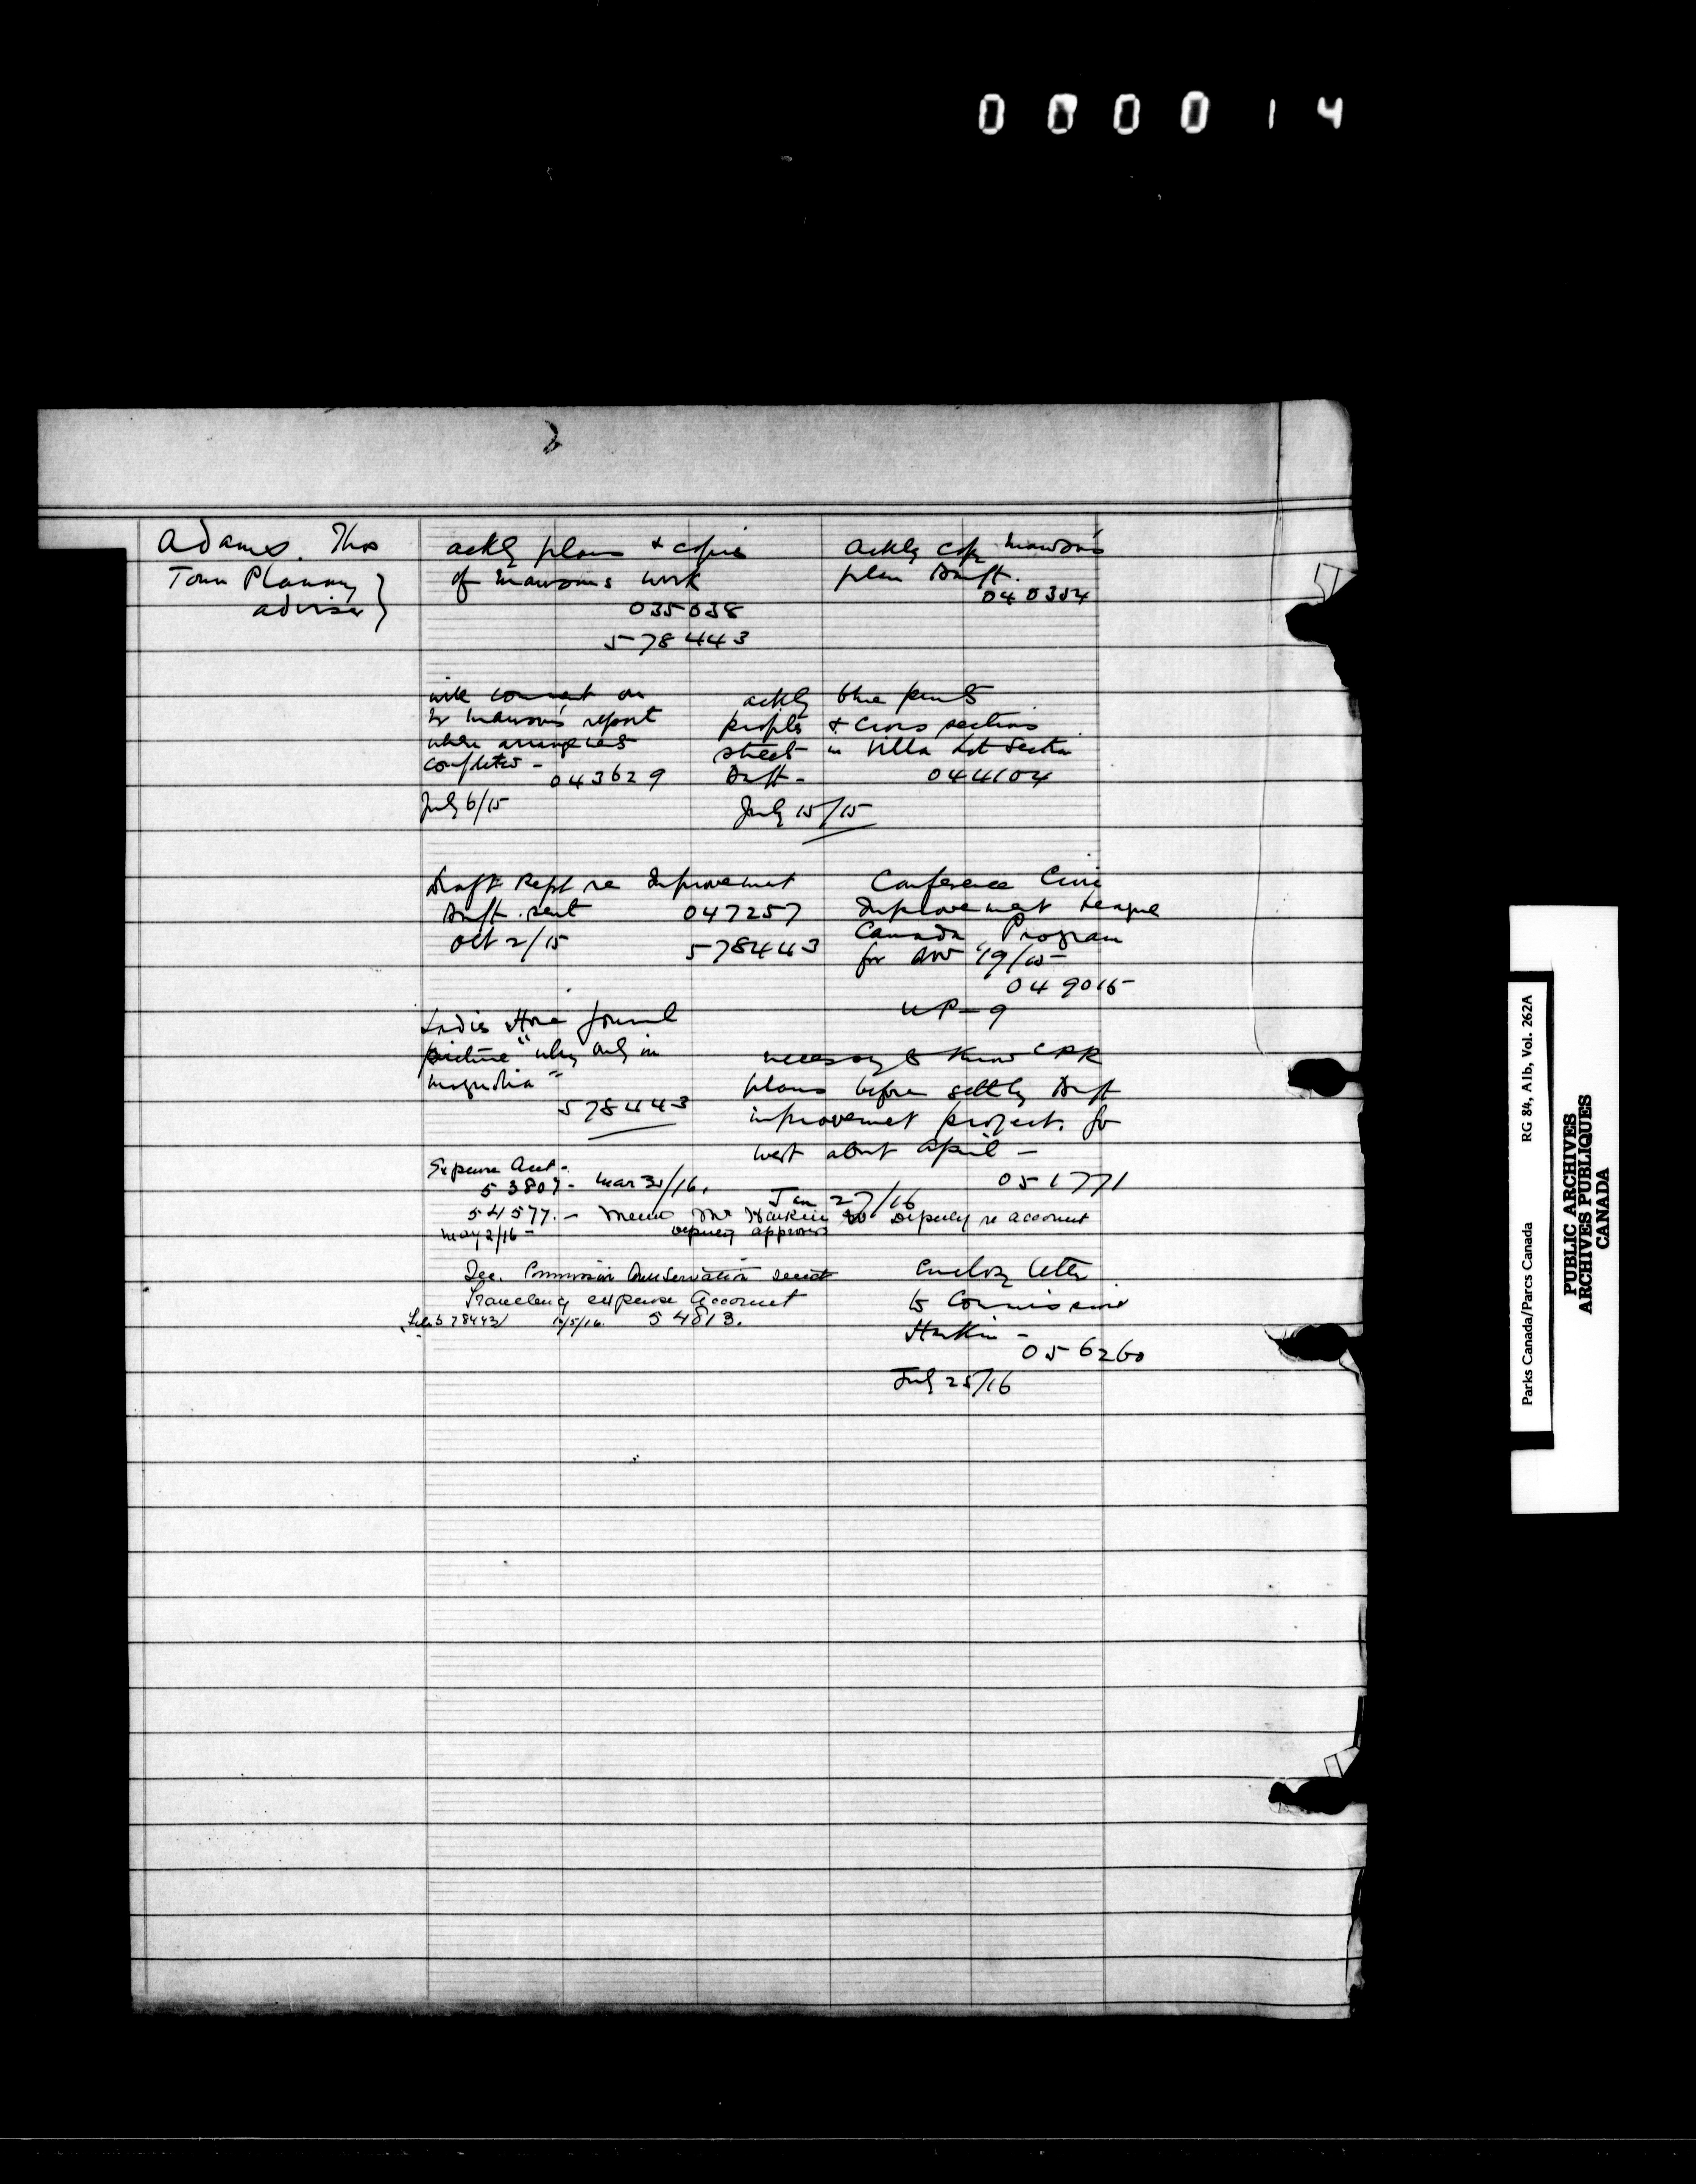 000014
Adams. Thos
Town Planning
adviser
ackly plans & copies
of Mawson's work
035038
578443
Ackly copy Mawson's
plan Banff.
040354
will comment on
Mr Mawson's report
when arrangements
completed -
043629
July 6/15
ackly blue prints
profiles & cross sections
streets in Villa Lot Section
Banff -
044104
July 15/15
Draft Rept re Improvement
Banff. sent
047257
Oct 2/15
578443
Conference Civic
Improvement League
Canada Program
for Nov 19/15
049015
UP-9
Ladies Home Journal
picture "why only in
magnolia"
578443
necessary to know CPR
plans before settling Banff
improvement project. Go
west about April -
051771
Jan 27/16
Expense Acct -
53807 - Mar 31/16.
54577. - Memo Mr Harkin to Deputy re account
May 2/16 - Deputy approves
Sec. Commission Conservation
Travelling expense Account
578443 10/5/16. 54813.
Encloses letter
to Commissioner
Harkin -
056260
July 25/16
Parks Canada/Parcs Canada RG 84, A1b, Vol. 262A
PUBLIC ARCHIVES
ARCHIVES PUBLIQUES
CANADA